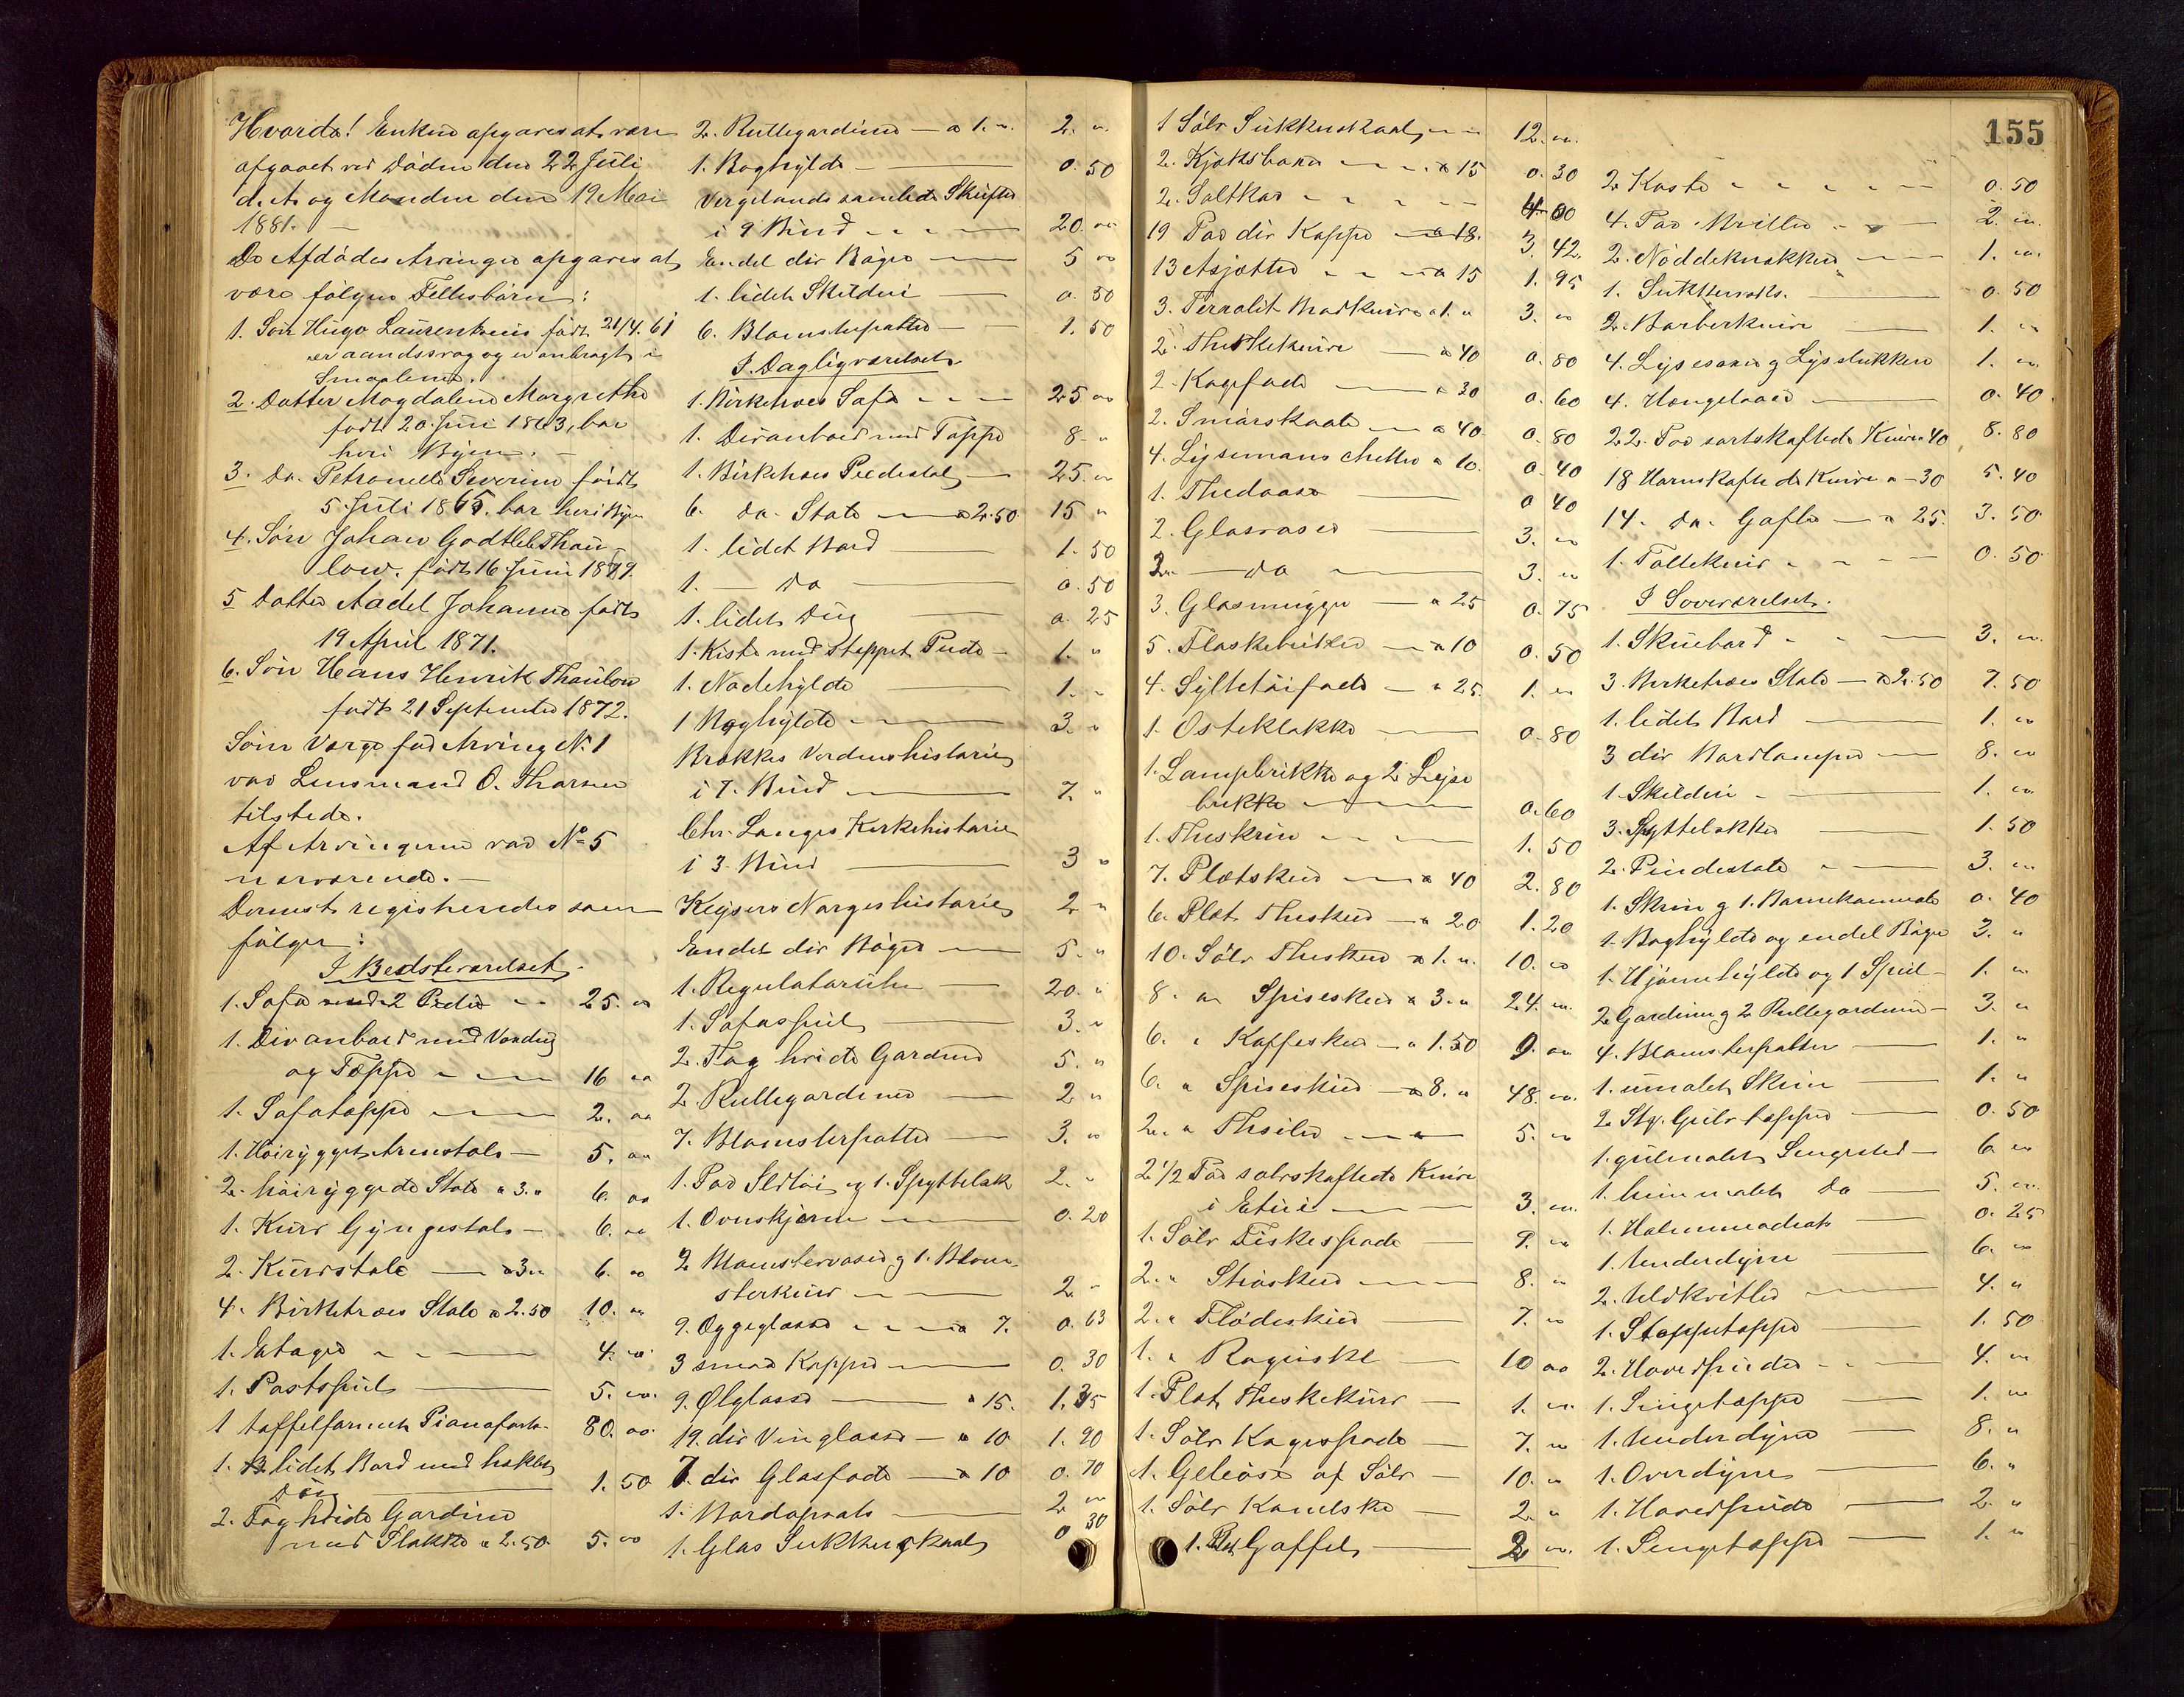 Hvorda! Enken opgaves at være
afgaaet ved Døden den 22 Juli
d. A. og Manden den 19 Mai
1881. —
De Afdødes Arvinger opgaves at
være følgen Fellesbørn:
1. Søn Hugo Laurentius født 21/4. 61
er aandssvag og er anbragt i
Smaalene.
2. Datter Magdalene Margrethe
født 20. Juni 1863, bor
heri Byen. —
3. Do. Petronelle Severine født
5. Juli 1865. bor heri Byen
4. Søn Johan Godtleb Thau-
low. født 16 Juni 1869.
5 Datter Aadel Johanne født
19 April 1871.
6. Søn Hans Henrik Thaulow
født 21 September 1872.
Som Værge for Arving No 1
var Lensmand O. Thorsen
tilstede.
Af Arvingerne var No 5
nærværende. —
Dernest registreredes som
følger:
I Bedsteværelset.
1. Sofa med 2 Puder 25. "
1. Divanbord med Voxdug
og Tæppe 16 "
1. Sofatæppe 2. "
1. Høirygget Armstole — 5. "
2. høiryggede Stole a 3. " 6. "
1. Kurv Gyngestole — 6. "
2. Kurvstole — a 3 " 6. "
4. Birketræes Stole a 2.50 10. "
1. Etager 4. "
1. Postspeil 5. "
1 taffelformet Pianoforte 80. "
1. lidet Bord med heklet
Dug 1. 50
2. Fag hvide Gardiner
med Flakke a 2.50. 5. "
2. Rullegardiner — a 1. " 2. "
1. Boghylde 0. 50
Vergelands samlede Skrifter
i 9 Bind 20. "
Endel div Bøger 5 "
1. lidet Skilderi 0. 50
6. Blomsterpotter 1. 50
I Dagligværelset
1. Birketræes Sofa 25 "
1. Divanbord med Tæppe 8. "
1. Birketræes Piedestal 25. "
6. do. Stole — a 2.50 15 "
1. lidet Bord 1. 50
1. — do 0. 50
1. lidet Dug 0. 25
1. Kiste med stoppet Pude — 1. "
1. Nodehylde 1. "
1 Boghylde 3. "
Brokkes Verdenshistorie
i 7. Bind 7. "
Chr. Langes Kirkehistorie
i 3 Bind 3 "
Keysers Norges historie 2 "
Endel div Bøger 5. "
1. Regulatoruhr 20. "
1. Sofaspeil 3. "
2. Fag hvide Gardiner 5. "
2. Rullegardiner 2 "
7. Blomsterpotter 3. "
1. Par Ildtøi og 1. Spyttebak 2. "
1. Ovnskjerm 0. 20
2 Blomstervaser og 1. Blom-
sterkurv 2 "
9. Æggeglasse a 7. 0. 63
3 smaa Kopper 0. 30
9. Ølglasse a 15. 1. 35
19. div Vinglasse — a 10 1. 90
7. div Glasfade — a 10 0. 70
1. Bordopsats 2 "
1. Glas Sukkerskaal 0 30
1 Sølv Sukkerskaal 12. "
2. Kjøksbana a 15 0. 30
2. Saltkar
19 Par div Kopper a 18. 3. 42.
13 Asjetter a 15 1. 95
3. Terralit a 1. " 3. "
2. a 40 0. 80
2. Kagefade a 30 0. 60
2. Smørskaale a 40 0. 80
4. Lysemanschetter a 10. 0. 40
1. Thedaase 0 40
2. Glasvaser 3. "
2. — do 3. "
3. Glasmugger — a 25 0. 75
5. Flaskebrikker — a 10 0. 50
4. Syltetøifade — a 25. 1. "
1. Osteklokke 0. 80
1. Lampbrikke og 2 Lyse
brikke 0. 60
1. Theskrin 1. 50
7. Pletskeer a 40 2. 80
6. Plet Theskeer — a 20 1. 20
10. Sølv Theskeer a 1. " 10. "
8. " Spiseskeer a 3. " 24. "
6. " Kaffeskeer — a 1.50 9. "
6. " Spiseskeer — a 8. " 48. "
2. " Thesiler 5. "
2 1/2 Par sølvskaftede Knive
i Etuie 3. "
1. Sølv Fiskespade 9. "
2. " Strøskeer 8. "
2. " Flødeskeer 7. "
1. " Raguskee 10 "
1. Plet Theskekurv 1. "
1. Sølv Kagespade 7. "
1. Geleøse af Sølv 10. "
1. Sølv Kandske 2. "
1. Plet Gaffel 2 "
155
2 Koste 0. 50
4. Par Briller 2. "
2. Nøddeknækker 1. "
1. Sukkersaks. 0. 50
2. Barberknive 1. "
4. Lysesaxe og Lysslukker 1. "
4. Hængelaase 0. 40.
22. Par sortskaftede Knive 40 8. 80
18 Hornskaftede Knive a — 30 5. 40
14. do. Gafler — a 25. 3. 50
1. Foldekniv 0. 50
I Soveværelset.
1. Skuebord 3. "
3. Birketræes Stole — a 2.50 7. 50
1. lidet Bord 1. "
3 div Bordlamper 8. "
1. Skilderi 1. "
3. Spyttebakker 1. 50
2. Pindestole 3. "
1. Skrin og 1. Barnekommode 0. 40
1. Boghylde og endel Bøger 3. "
1. Hjørnehylde og 1 Speil — 1. "
2 Gardiner og 2 Rullegardiner — 3. "
4. Blomsterpotter 1. "
1. umalet Skrin 1. "
2. Stk. Gulvtæpper 0. 50
1. gulmalet Sengested — 6 "
1. do 5. "
1. Halmmadrats 0. 25
1. Underdyne 6. "
2. Uldkvitler 4. "
1. Stoppetæppe 1. 50
2. Hovedpuder 4. "
1. Sengetæppe 1. "
1. Underdyne 8. "
1. Overdyne 6. "
1. Hovedpude 2. "
1. Sengetæppe 1. "